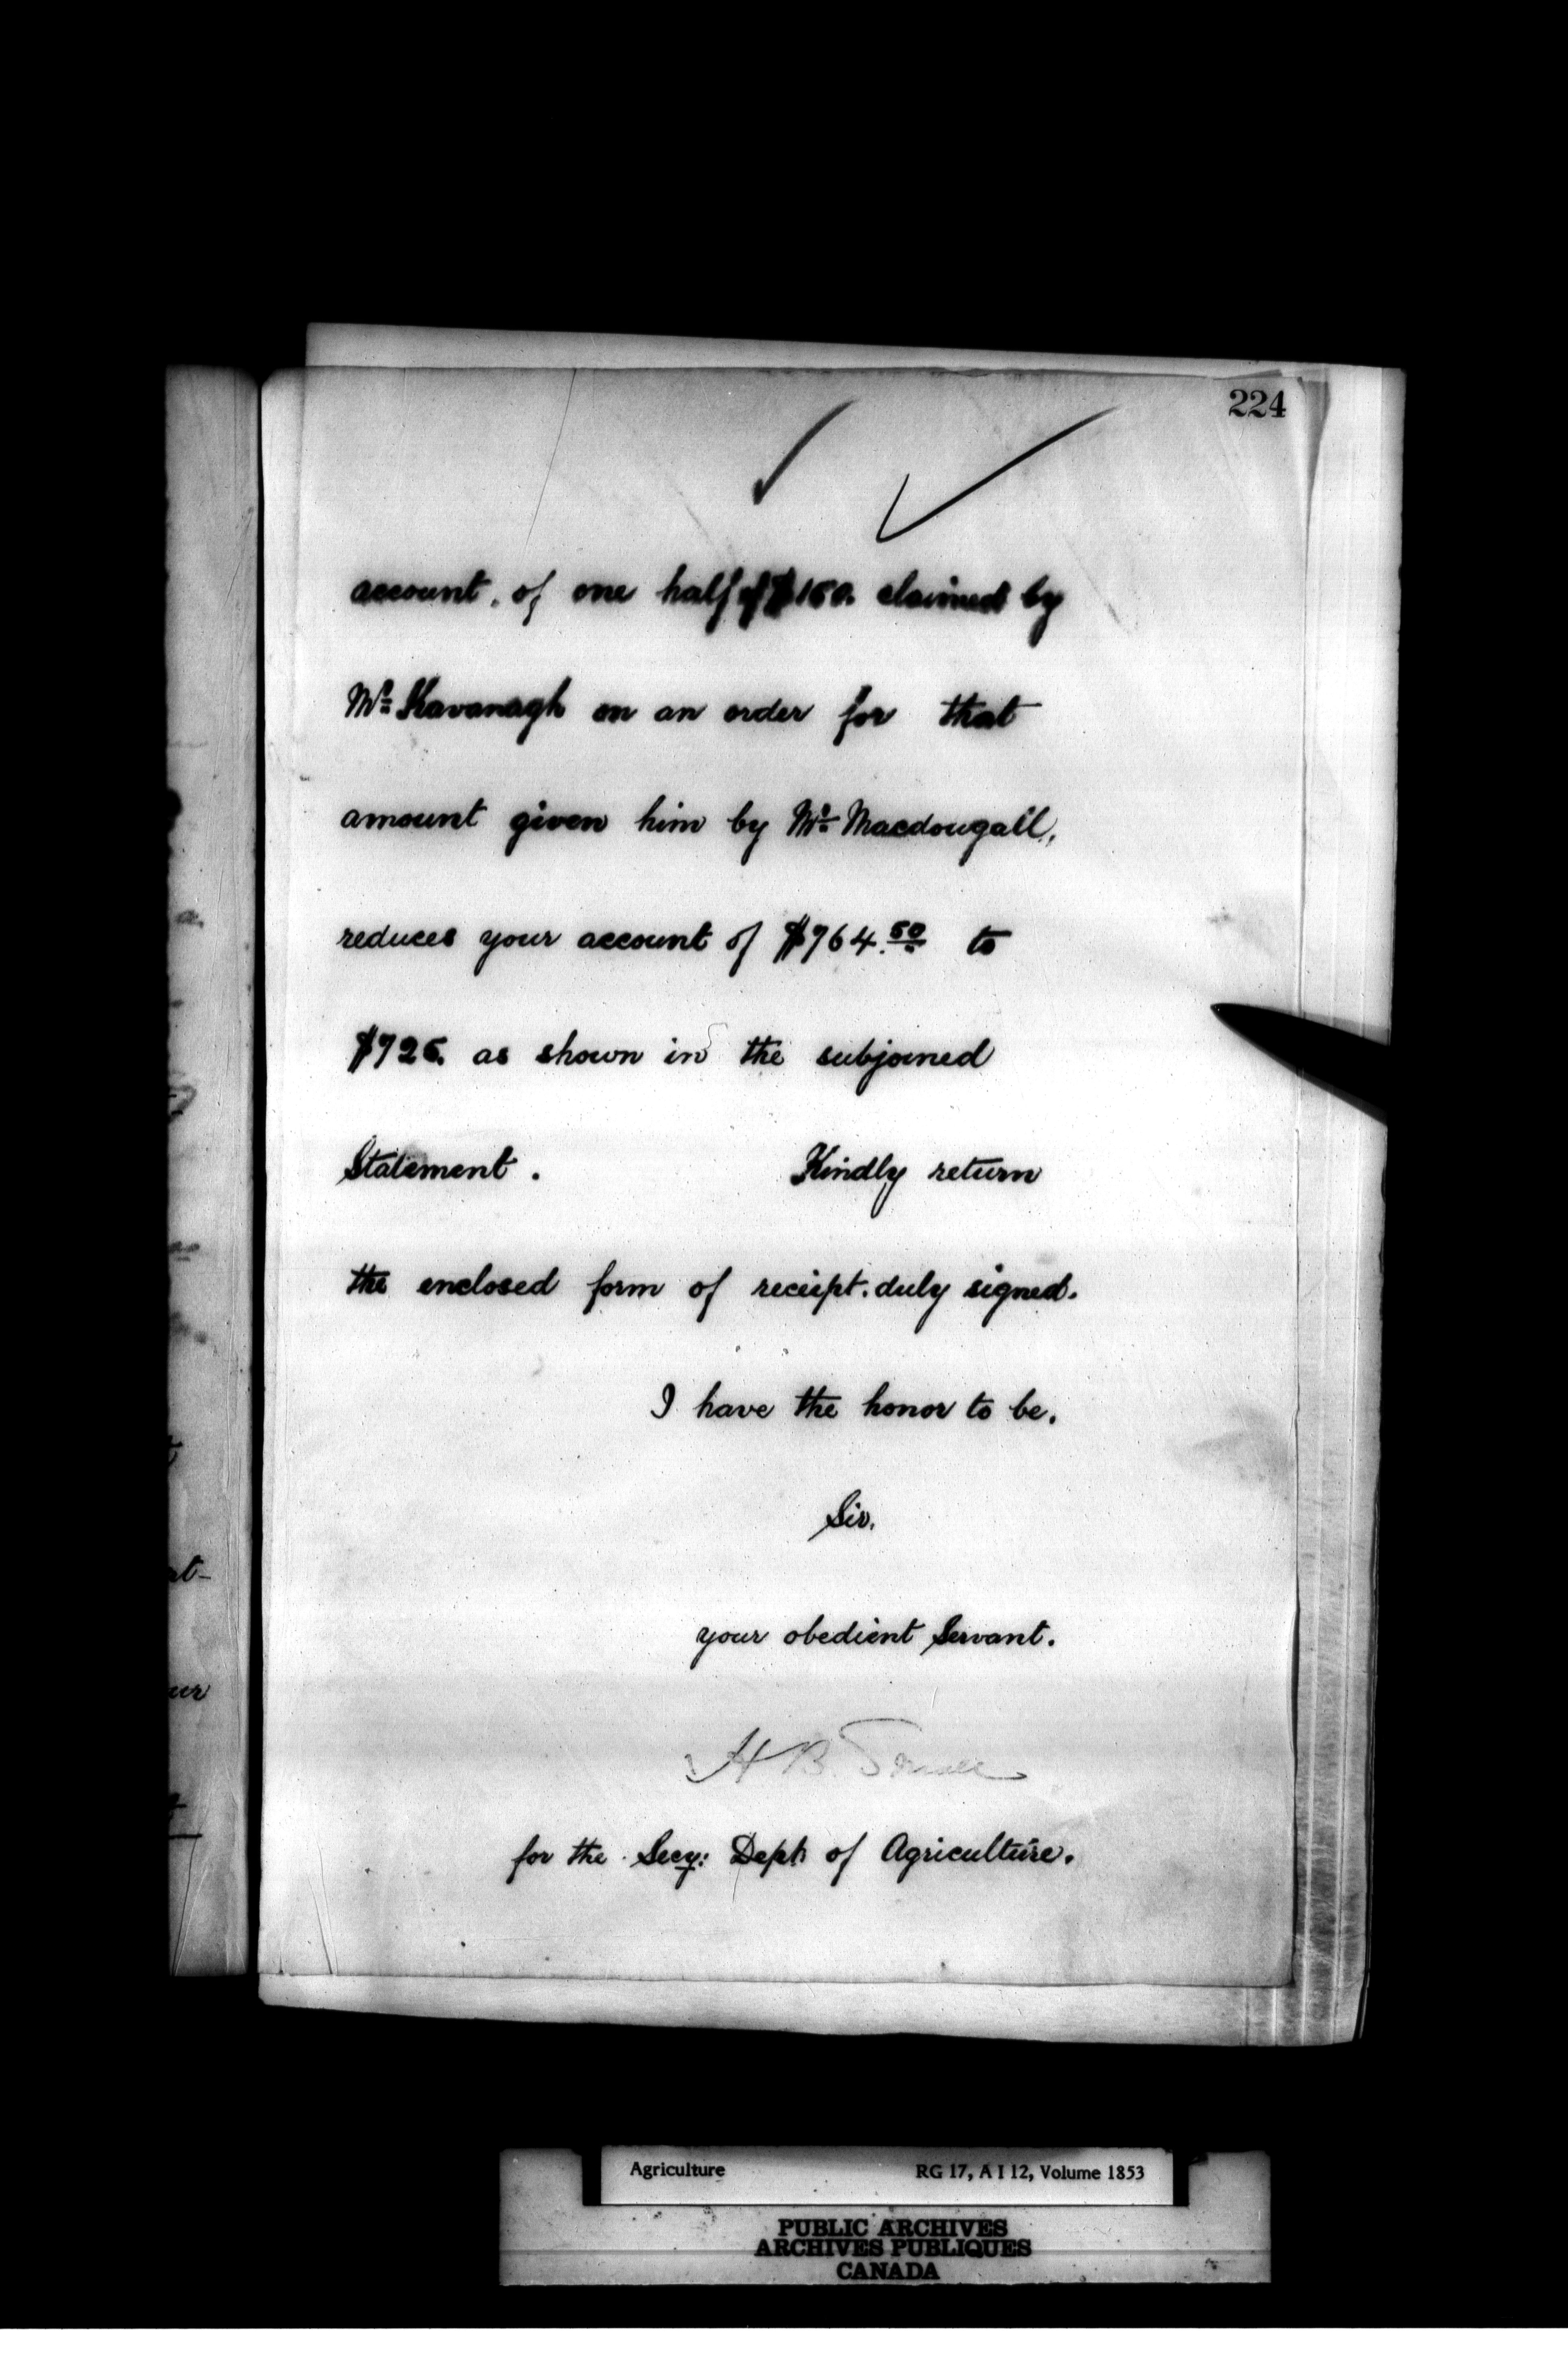 224
account. of one half of $150. claimed by
Mr. Kavanagh on an order for that
amount given him by Mr. Macdougall,
reduces your account of $764.50 to
$725. as shown in the subjoined
Statement. Kindly return
the enclosed form of receipt. duly signed.
I have the honor to be.
Sir.
your obedient Servant.
H B Small
for the Secy: Dept of Agriculture.
Agriculture RG 17, A I 12, Volume 1853
PUBLIC ARCHIVES
ARCHIVES PUBLIQUES
CANADA